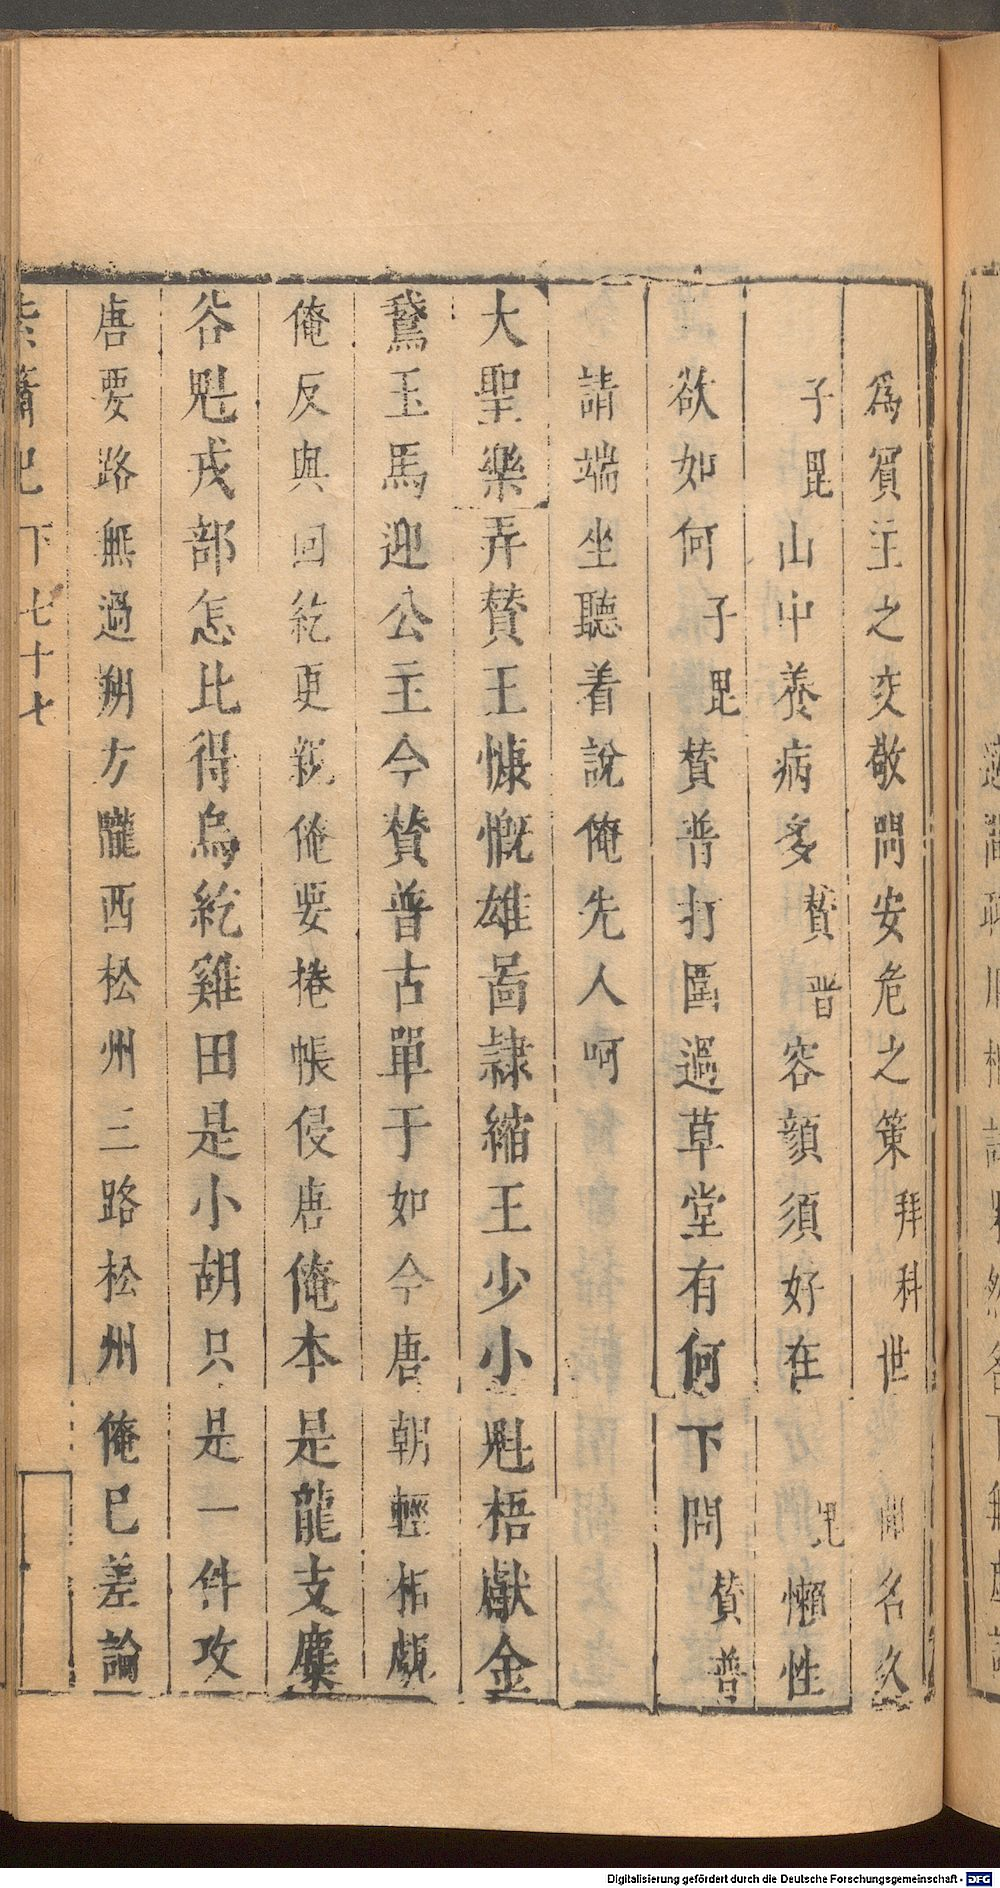 為賓主之交敬問安危之策拜科世聞名久
子毘山中養病多賛普容顔須好在毘懶性
欲如何子毘賛普打圍過草堂有何下問賛普
請端坐聽着說俺先人呵
大聖樂弄賛王慷慨雄啚隷縮王少小魁梧獻金
鵞玉馬迎公主今賛普古單于如今唐朝輕柘覷
俺反與回紇更親俺要捲帳侵唐俺本是龍支麋
谷魁戎部怎比得烏紇雞田是小胡只是一件攻
唐要路無過朔方隴西松州三路松州俺已差論
紫簫記下七十七
Digitalisierung gefördert durch die Deutsche Forschungsgemeinschaft - DFG